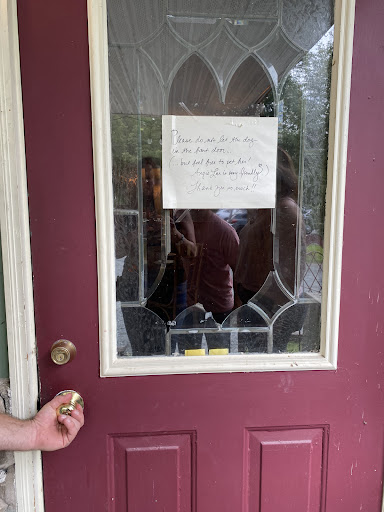 Please do not let the dog
in the front door.
(but feel free to pet her!
she is very friendly!)
Thank you so much!!